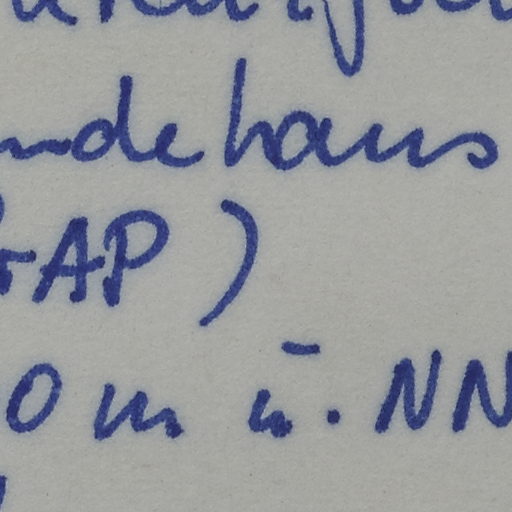 ndehaus
GAP)
0 m ü. NN